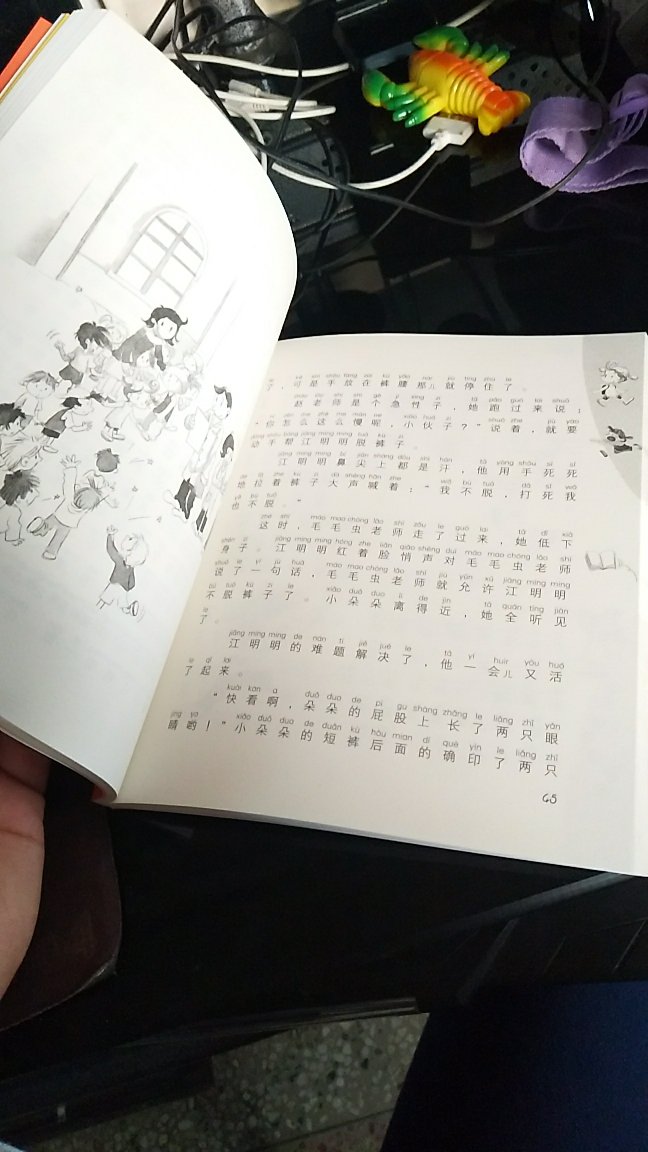 了，可是手放在裤腰那儿就停住了。
赵老师是个急性子，她跑过来说：
“你怎么这么慢呢，小伙子？”说着，就要
动手帮江明明脱裤子。
江明明鼻尖上都是汗，他用手死死
地拉着裤子大声喊着：“我不脱，打死我
也不脱。”
这时，毛毛虫老师走了过来，她低下
身子。江明明红着脸悄声对毛毛虫老师
说了一句话，毛毛虫老师就允许江明明
不脱裤子了。小朵朵离得近，她全听见
了。
江明明的难题解决了，他一会儿又活
了起来。
“快看啊，朵朵的屁股上长了两只眼
睛哟！”小朵朵的短裤后面的确印了两只
65